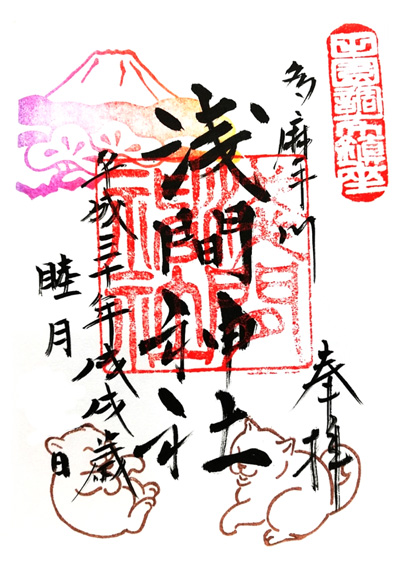 田園調布鎮座
奉拝
多麻 川
浅間神社
平成三十年戊戌歳
睦月 日